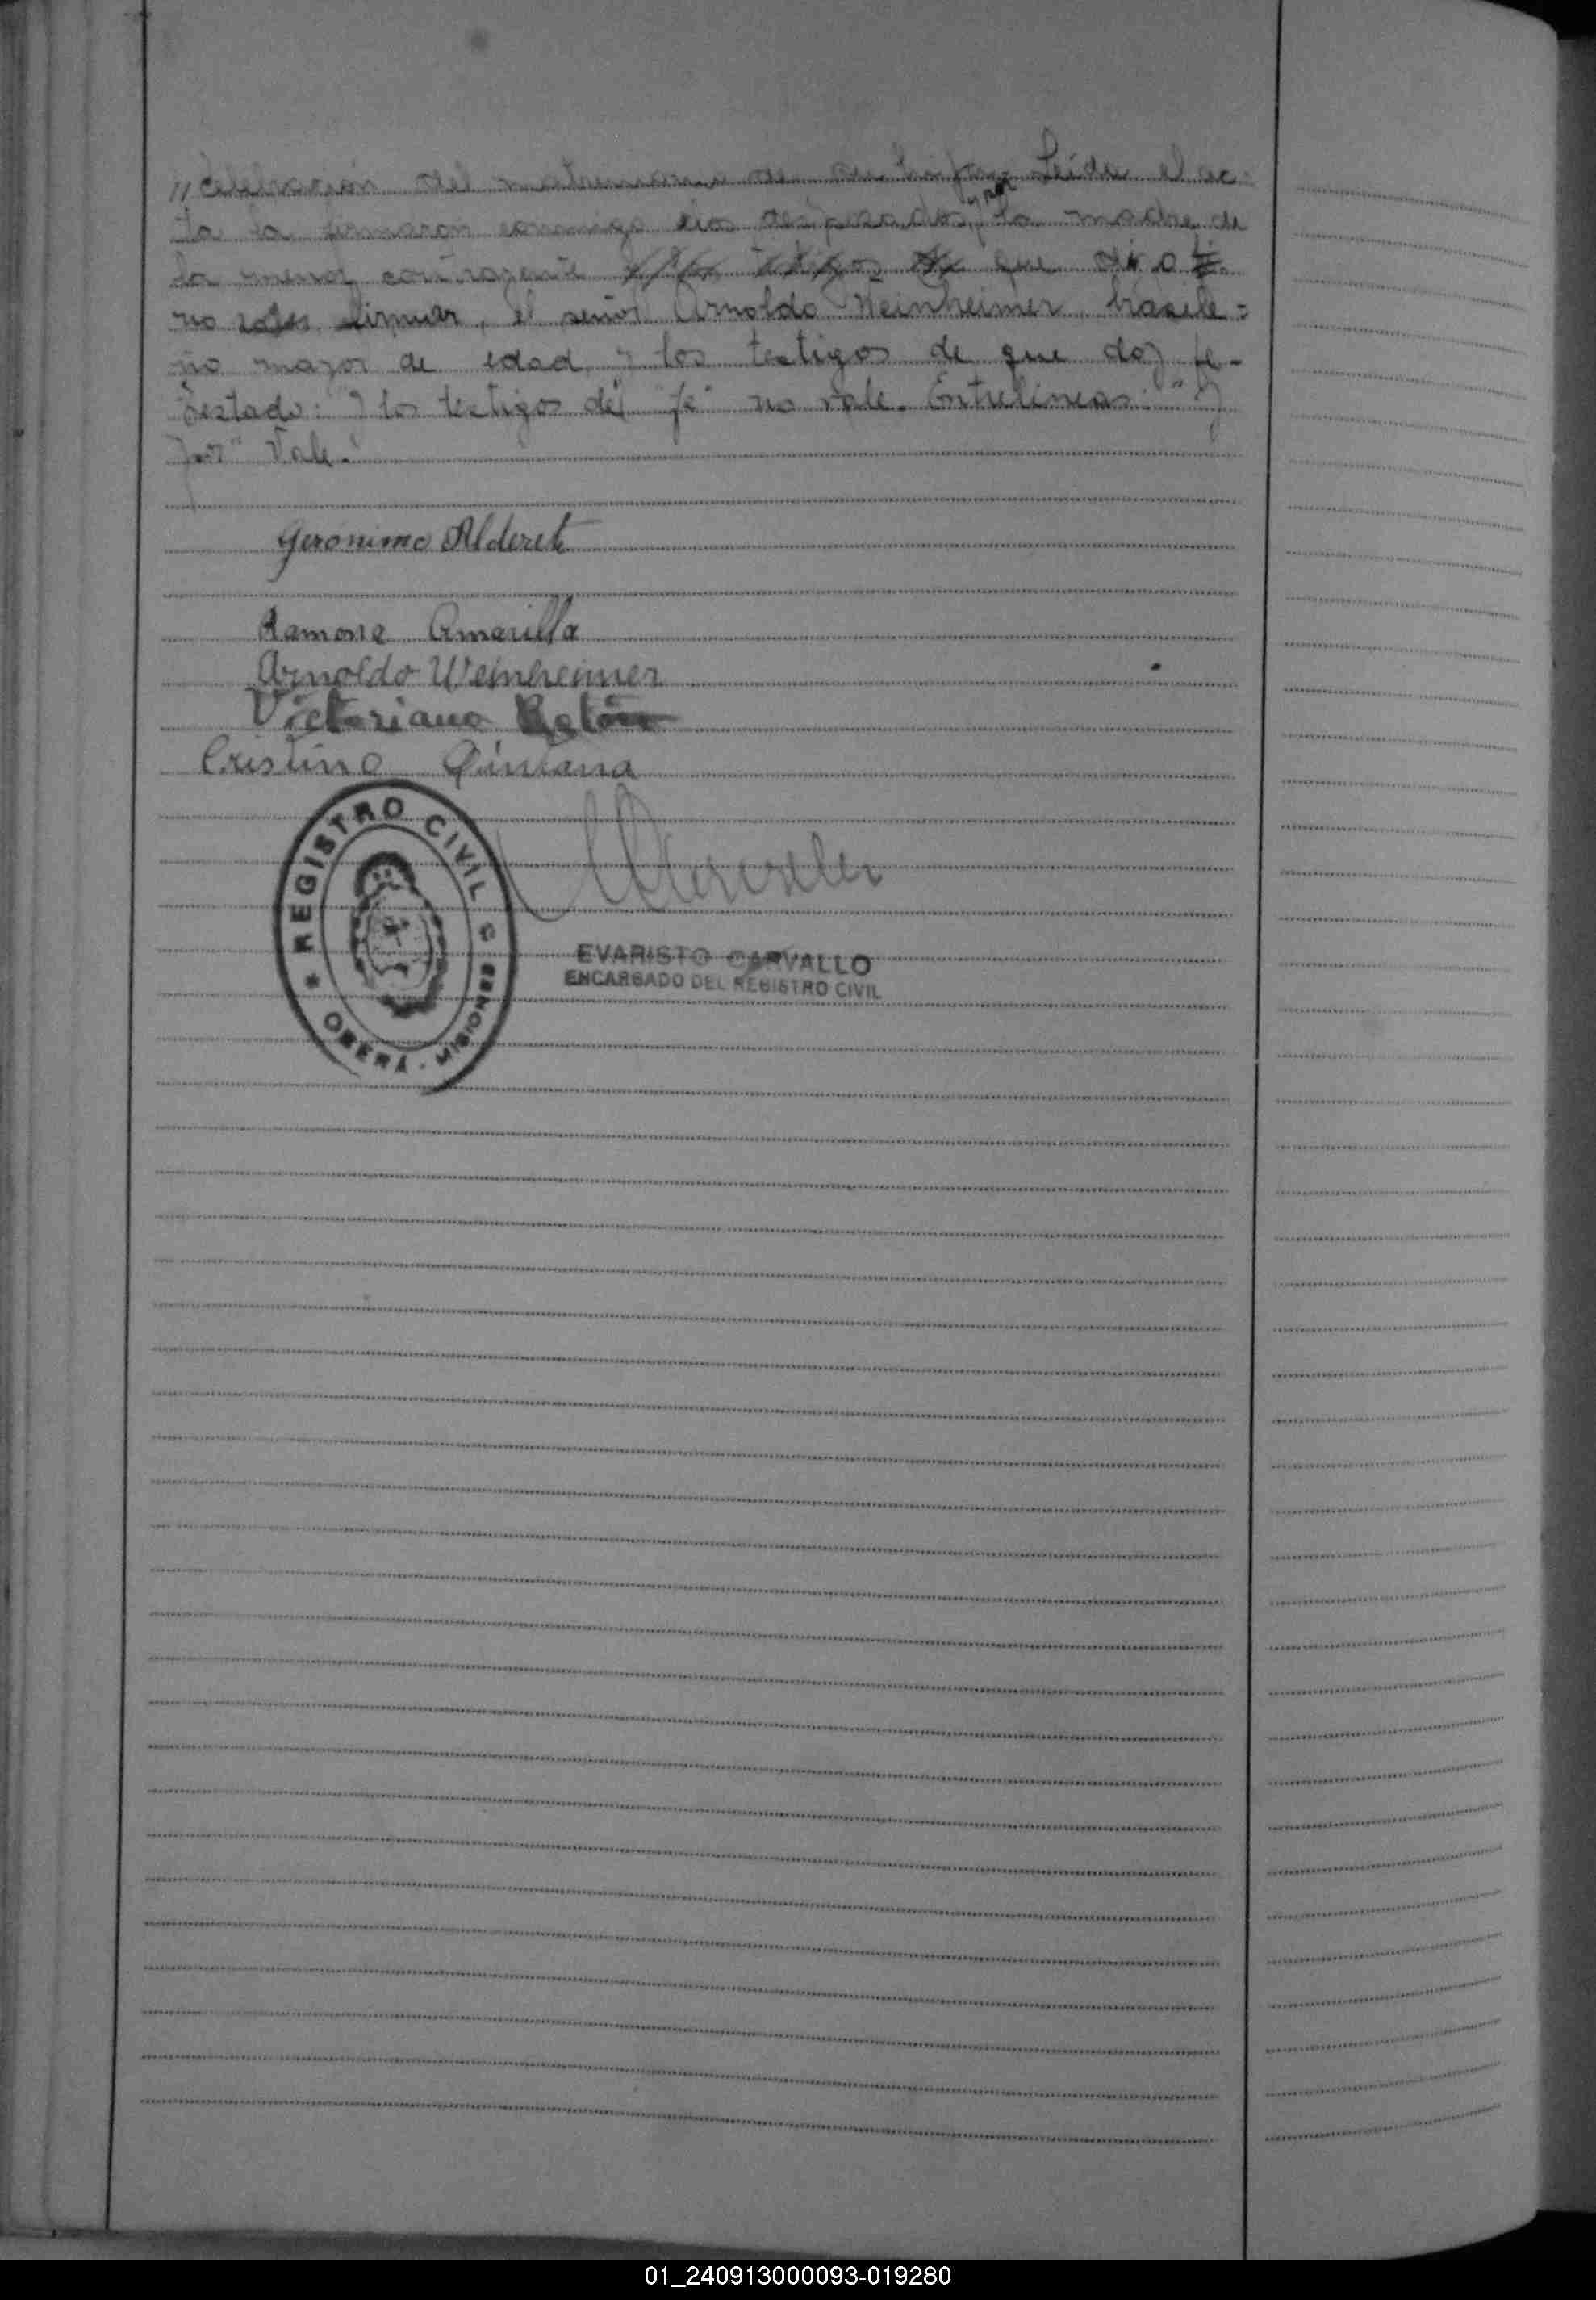 "celebración del matrimonio de su hija. Leída el ac-
ta la firmaron conmigo los desposados, y por la madre de
la menor contrayente y los testigos de que dijo
no saber firmar, el señor Arnoldo Weinheimer, brasile=
ño mayor de edad y los testigos de que doy fe-
Testado: "y los testigos de" "fe" no vale. Entrelíneas: "y
por" Vale.
Gerónimo Alderete
Ramona Amarilla
Arnoldo Weinheimer
Victoriano
Cristino Qintana
REGISTRO CIVIL
OBERÁ - MISIONES
EVARISTO CARVALLO
ENCARGADO DEL REGISTRO CIVIL
01_240913000093-019280